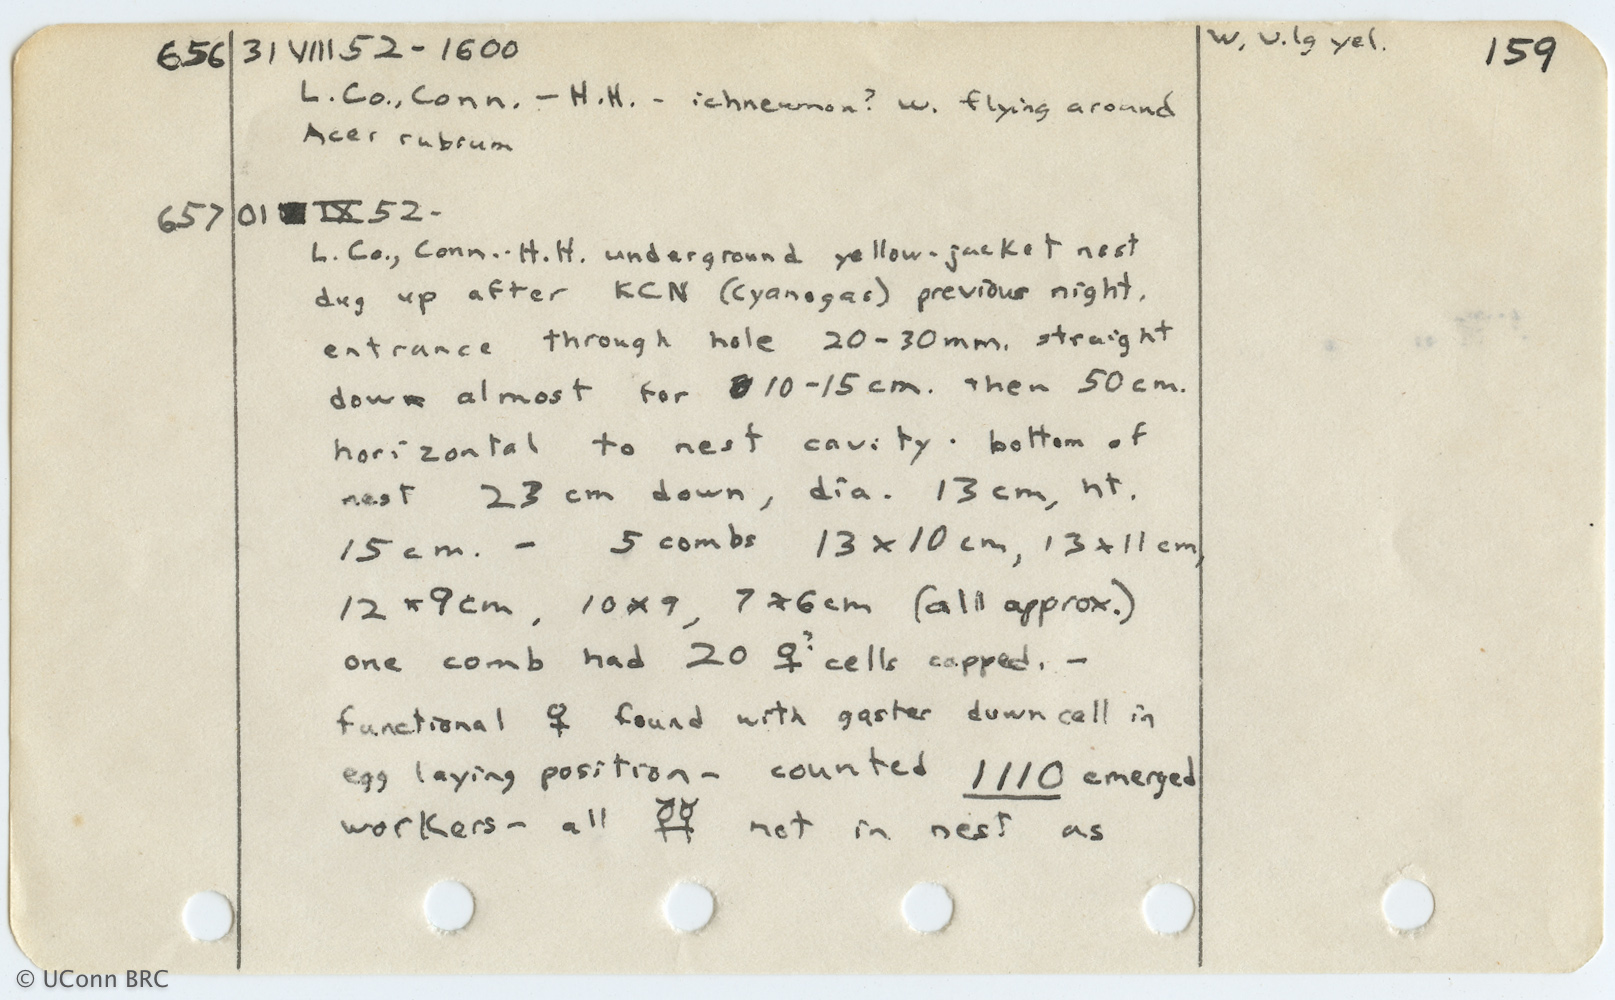 656 31 VIII 52 - 1600 W, v.lg yel. 159
L.Co., Conn. - H.H. - ichneumon? w. flying around
Acer rubrum
657 01 IX 52 -
L. Co., Conn.. H.H. underground yellow-jacket nest
dug up after KCN (Cyanogas) previous night.
entrance through hole 20-30mm. straight
down almost for 10-15cm. then 50cm.
horizontal to nest cavity. bottom of
nest 23 cm down, dia. 13 cm, ht.
15 cm. - 5 combs 13 x 10 cm, 13 x 11 cm,
12 x 9cm, 10 x 9, 7 x 6cm (all approx.)
one comb had 20 ♀? cells capped. -
functional ♀ found with gaster down cell in
egg laying position - counted 1110 emerged
workers - all ☿☿ not in nest as
© UConn BRC